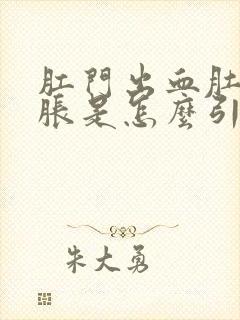 肛門出血肚
脹是怎麼引
朱大勇